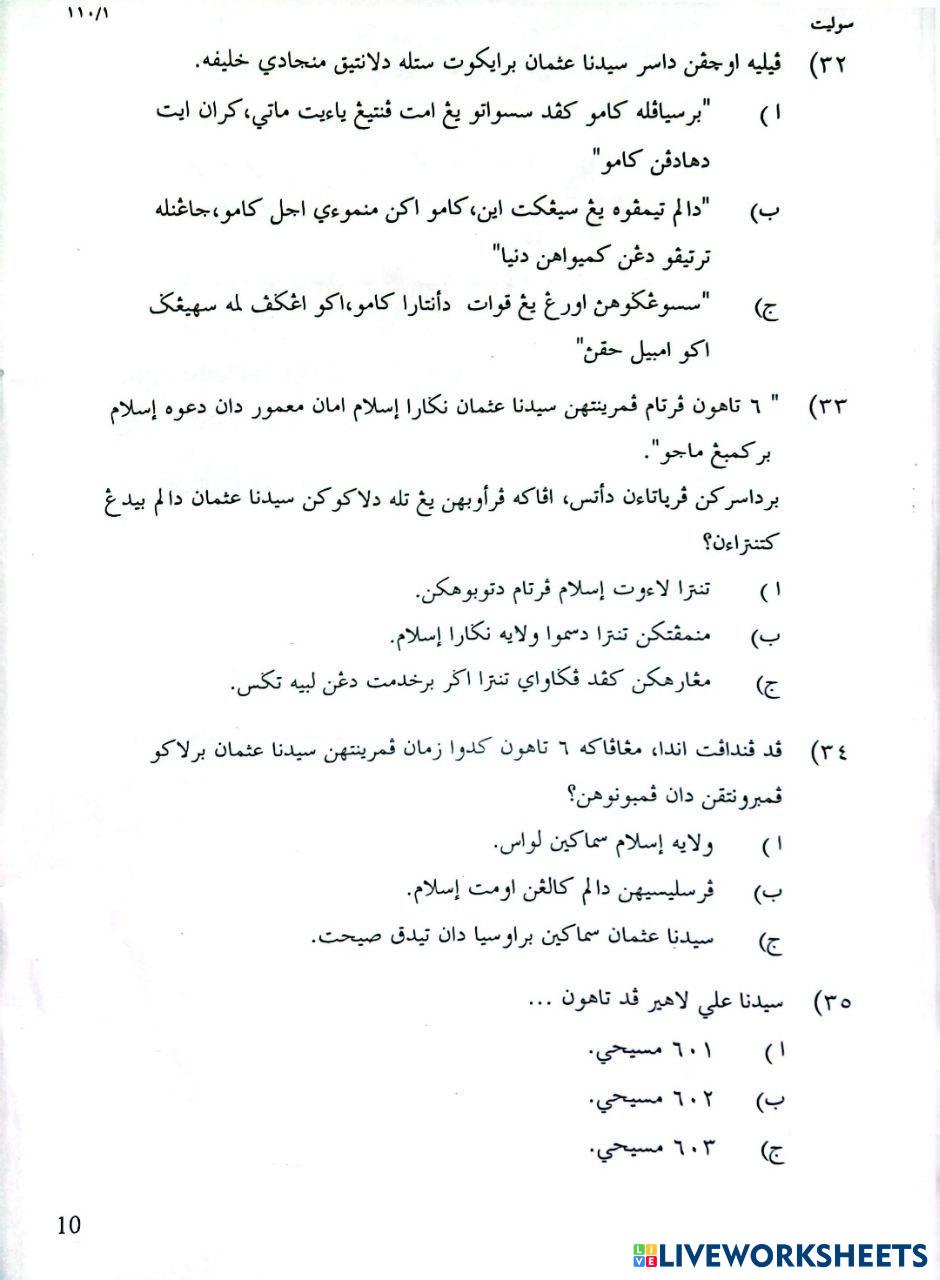 ١١٠/١
سوليت
٣٢) ڤيليه اوچڤن داسر سيدنا عثمان برايكوت ستله دلانتيق منجادي خليفه.
ا) "برسياڤله كامو كڤد سسواتو يڠ امت ڤنتيڠ ياءيت ماتي،كران ايت
دهادڤن كامو"
ب) "دالم تيمڤوه يڠ سيڠكت اين،كامو اكن منموءي اجل كامو،جاڠنله
ترتيڤو دڠن كميواهن دنيا"
ج) "سسوڠݢوهڽ اورڠ يڠ قوات دأنتارا كامو،اكو اڠݢڤ لمه سهيڠݢ
اكو امبيل حقڽ"
٣٣) " ٦ تاهون ڤرتام ڤمرينتهن سيدنا عثمان نݢارا إسلام امان معمور دان دعوه إسلام
بركمبڠ ماجو".
برداسركن ڤرڽاتاءن دأتس، اڤاكه ڤرأوبهن يڠ تله دلاكوكن سيدنا عثمان دالم بيدڠ
كتنتراءن؟
ا) تنترا لاءوت إسلام ڤرتام دتوبوهكن.
ب) منمڤتكن تنترا دسموا ولايه نݢارا إسلام.
ج) مڠارهكن كڤد ڤݢاواي تنترا اݢر برخدمت دڠن لبيه تݢس.
٣٤) ڤد ڤنداڤت اندا، مڠاڤاكه ٦ تاهون كدوا زمان ڤمرينتهن سيدنا عثمان برلاكو
ڤمبرونتقن دان ڤمبونوهن؟
ا) ولايه إسلام سماكين لواس.
ب) ڤرسليسيهن دالم كالڠن اومت إسلام.
ج) سيدنا عثمان سماكين براوسيا دان تيدق صيحت.
٣٥) سيدنا علي لاهير ڤد تاهون ...
ا) ٦٠١ مسيحي.
ب) ٦٠٢ مسيحي.
ج) ٦٠٣ مسيحي.
10
LIVE LIVEWORKSHEETS